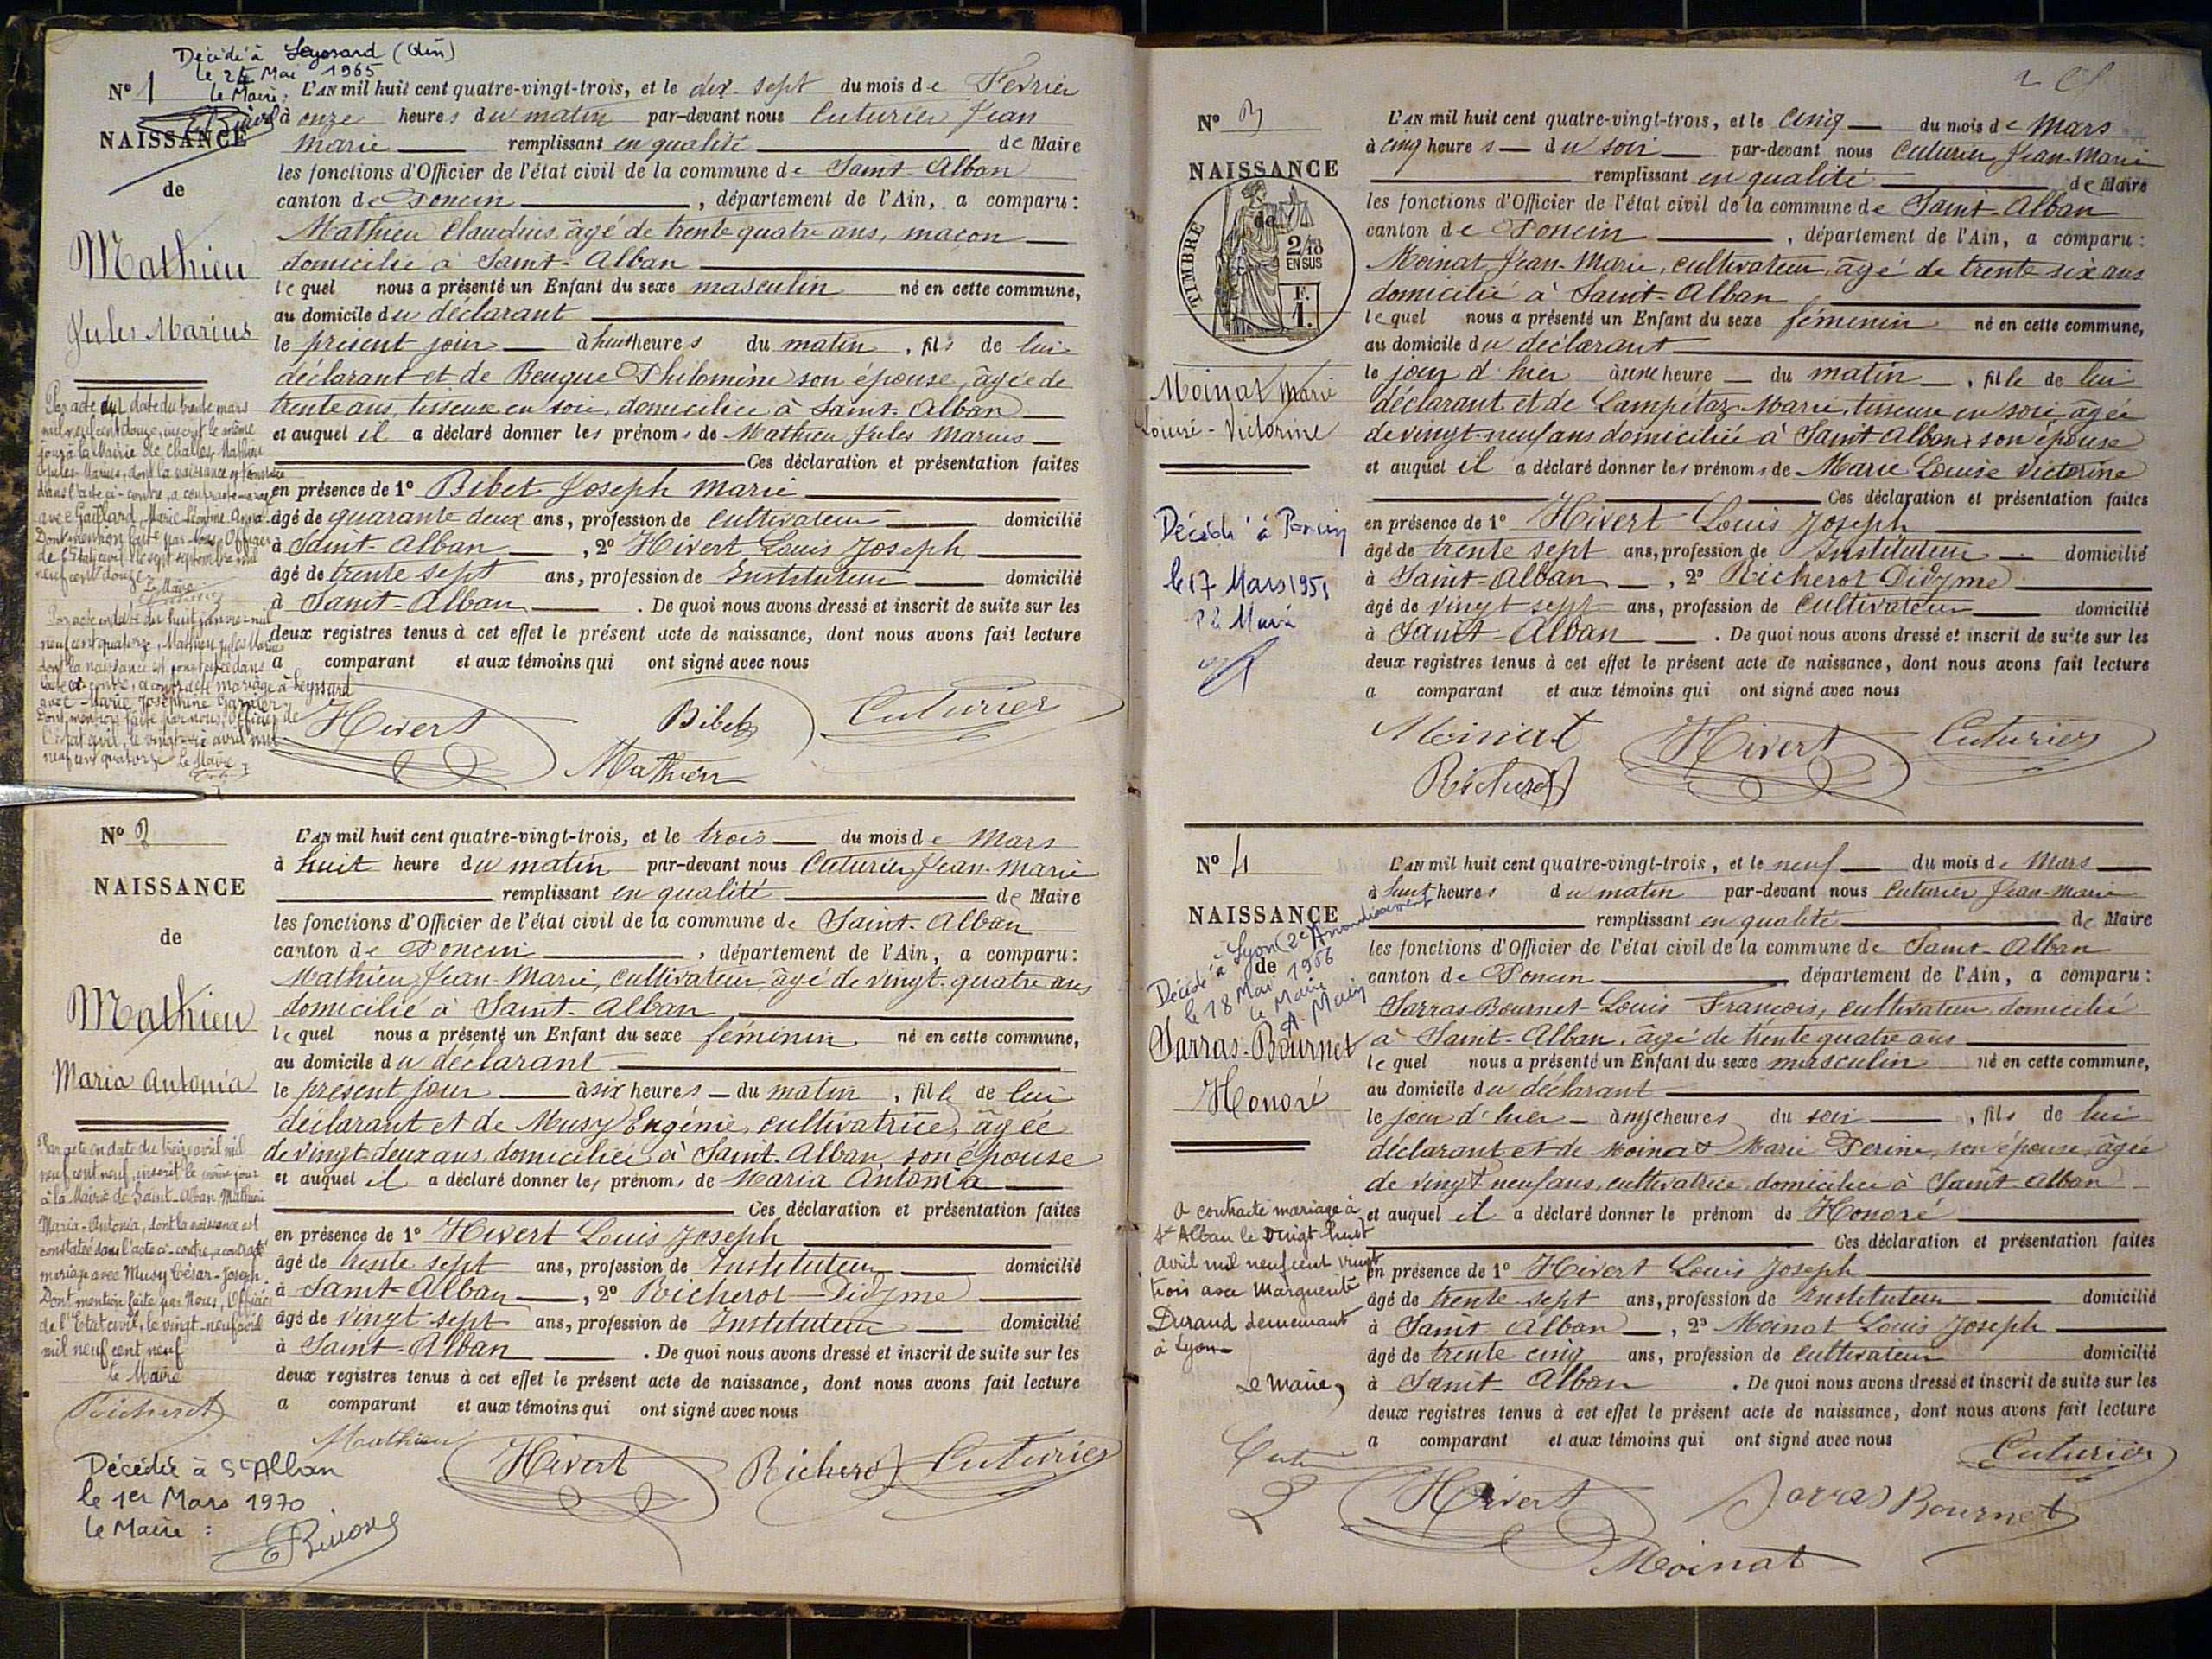 Décidé à Leyssard (Ain)
le 24 Mai 1965
le Maire :
N° 1
NAISSANCE
de
Mathieu
Jules Marius
Par acte en date du trente mars
mil neuf cent douze, inscrit le même
jour à la Mairie de Challes, Mathieu
Jules-Marius, dont la naissance est constatée
dans l'acte ci-contre, a contracté mariage
avec Gaillard, Marie Léontine Anna.
Dont mention faite par Nous, Officier
de l'Etat civil, le sept septembre mil
neuf cent douze
Le Maire
Par acte en date du huit janvier mil
neuf cent quatorze, Mathieu Jules Marius
dont la naissance est constatée dans
l'acte ci-contre, a contracté mariage à Leyssard
avec Marie Joséphine Garnier
Dont mention faite par nous, Officier de
l'état civil, le vingt-six avril mil
neuf cent quatorze Le Maire
L'AN mil huit cent quatre-vingt-trois, et le dix-sept du mois de Fevrier
à onze heures du matin par-devant nous Cuturier Jean
Marie remplissant en qualité de Maire
les fonctions d'Officier de l'état civil de la commune de Saint-Alban
canton de Poncin , département de l'Ain, a comparu :
Mathieu Claudius, âgé de trente quatre ans, maçon
domicilié à Saint-Alban
lequel nous a présenté un Enfant du sexe masculin né en cette commune,
au domicile du déclarant
le présent jour à huit heures du matin , fils de lui
déclarant et de Bengue Philomène son épouse, âgée de
trente ans, tisseuse en soie, domiciliée à Saint-Alban
et auquel il a déclaré donner les prénoms de Mathieu Jules Marius
Ces déclaration et présentation faites
en présence de 1° Bibet Joseph Marie
âgé de quarante deux ans, profession de cultivateur domicilié
à Saint-Alban , 2° Hivert Louis Joseph
âgé de trente sept ans, profession de Instituteur domicilié
à Saint-Alban . De quoi nous avons dressé et inscrit de suite sur les
deux registres tenus à cet effet le présent acte de naissance, dont nous avons fait lecture
a comparant et aux témoins qui ont signé avec nous
Hivert Bibet Cuturier
Mathieu
N° 2
NAISSANCE
de
Mathieu
Maria Antonia
Par acte en date du treize avril mil
neuf cent neuf, inscrit le même jour
à la Mairie de Saint-Alban, Mathieu
Maria-Antonia, dont la naissance est
constatée dans l'acte ci-contre, a contracté
mariage avec Musy César-Joseph.
Dont mention faite par Nous, Officier
de l'Etat civil, le vingt-neuf avril
mil neuf cent neuf
le Maire
Richerot
Décédée à St Alban
le 1er Mars 1970
le Maire :
L'AN mil huit cent quatre-vingt-trois, et le trois du mois de Mars
à huit heure du matin par-devant nous Cuturier Jean-Marie
remplissant en qualité de Maire
les fonctions d'Officier de l'état civil de la commune de Saint-Alban
canton de Poncin , département de l'Ain, a comparu :
Mathieu Jean-Marie, cultivateur âgé de vingt-quatre ans
domicilié à Saint-Alban
lequel nous a présenté un Enfant du sexe féminin né en cette commune,
au domicile du déclarant
le présent jour à six heures du matin , fille de lui
déclarant et de Musy Eugénie, cultivatrice, âgée
de vingt-deux ans, domiciliée à Saint-Alban son épouse
et auquel il a déclaré donner les prénoms de Maria Antonia
Ces déclaration et présentation faites
en présence de 1° Hivert Louis Joseph
âgé de trente sept ans, profession de Instituteur domicilié
à Saint-Alban , 2° Richerot Didyme
âgé de vingt sept ans, profession de Instituteur domicilié
à Saint-Alban . De quoi nous avons dressé et inscrit de suite sur les
deux registres tenus à cet effet le présent acte de naissance, dont nous avons fait lecture
a comparant et aux témoins qui ont signé avec nous
Mathieu Hivert Richerot Cuturier
N° 3
NAISSANCE
de
TIMBRE
2/10
EN SUS
F.
1.
Moinat Marie
Louise-Victorine
Décédé à Poncin
le 17 Mars 1951
Le Maire
L'AN mil huit cent quatre-vingt-trois, et le cinq du mois de Mars
à cinq heures du soir par-devant nous Cuturier Jean-Marie
remplissant en qualité de Maire
les fonctions d'Officier de l'état civil de la commune de Saint-Alban
canton de Poncin , département de l'Ain, a comparu :
Moinat Jean-Marie, cultivateur, âgé de trente six ans
domicilié à Saint-Alban
lequel nous a présenté un Enfant du sexe féminin né en cette commune,
au domicile du déclarant
le jour d'hier à une heure du matin , fille de lui
déclarant et de Lampitaz Marie, tisseuse en soie âgée
de vingt-neuf ans domiciliée à Saint-Alban, son épouse
et auquel il a déclaré donner les prénoms de Marie Louise Victorine
Ces déclaration et présentation faites
en présence de 1° Hivert Louis Joseph
âgé de trente sept ans, profession de Instituteur domicilié
à Saint-Alban , 2° Richerot Didyme
âgé de vingt sept ans, profession de Cultivateur domicilié
à Saint-Alban . De quoi nous avons dressé et inscrit de suite sur les
deux registres tenus à cet effet le présent acte de naissance, dont nous avons fait lecture
a comparant et aux témoins qui ont signé avec nous
Moinat Hivert Cuturier
Richerot
N° 4
NAISSANCE
de
Décédé à Lyon (2e Arrondissement)
le 18 Mai 1956
le Maire
Sarras-Bournet
Honoré
a contracté mariage à
St Alban le vingt-huit
avril mil neuf cent vingt
trois avec Marguerite
Durand demeurant
à Lyon
Le Maire,
L'AN mil huit cent quatre-vingt-trois, et le neuf du mois de Mars
à huit heures du matin par-devant nous Cuturier Jean-Marie
remplissant en qualité de Maire
les fonctions d'Officier de l'état civil de la commune de Saint-Alban
canton de Poncin département de l'Ain, a comparu :
Sarras-Bournet Louis François, cultivateur, domicilié
à Saint-Alban, âgé de trente quatre ans
lequel nous a présenté un Enfant du sexe masculin né en cette commune,
au domicile du déclarant
le jour d'hier à onze heures du soir , fils de lui
déclarant et de Moinat Marie Perine, son épouse, âgée
de vingt neuf ans, cultivatrice, domiciliée à Saint-Alban
et auquel il a déclaré donner le prénom de Honoré
Ces déclaration et présentation faites
en présence de 1° Hivert Louis Joseph
âgé de trente sept ans, profession de Instituteur domicilié
à Saint-Alban , 2° Moinat Louis Joseph
âgé de trente cinq ans, profession de Cultivateur domicilié
à Saint-Alban . De quoi nous avons dressé et inscrit de suite sur les
deux registres tenus à cet effet le présent acte de naissance, dont nous avons fait lecture
a comparant et aux témoins qui ont signé avec nous
Cuturier
Hivert Sarras Bournet
Moinat